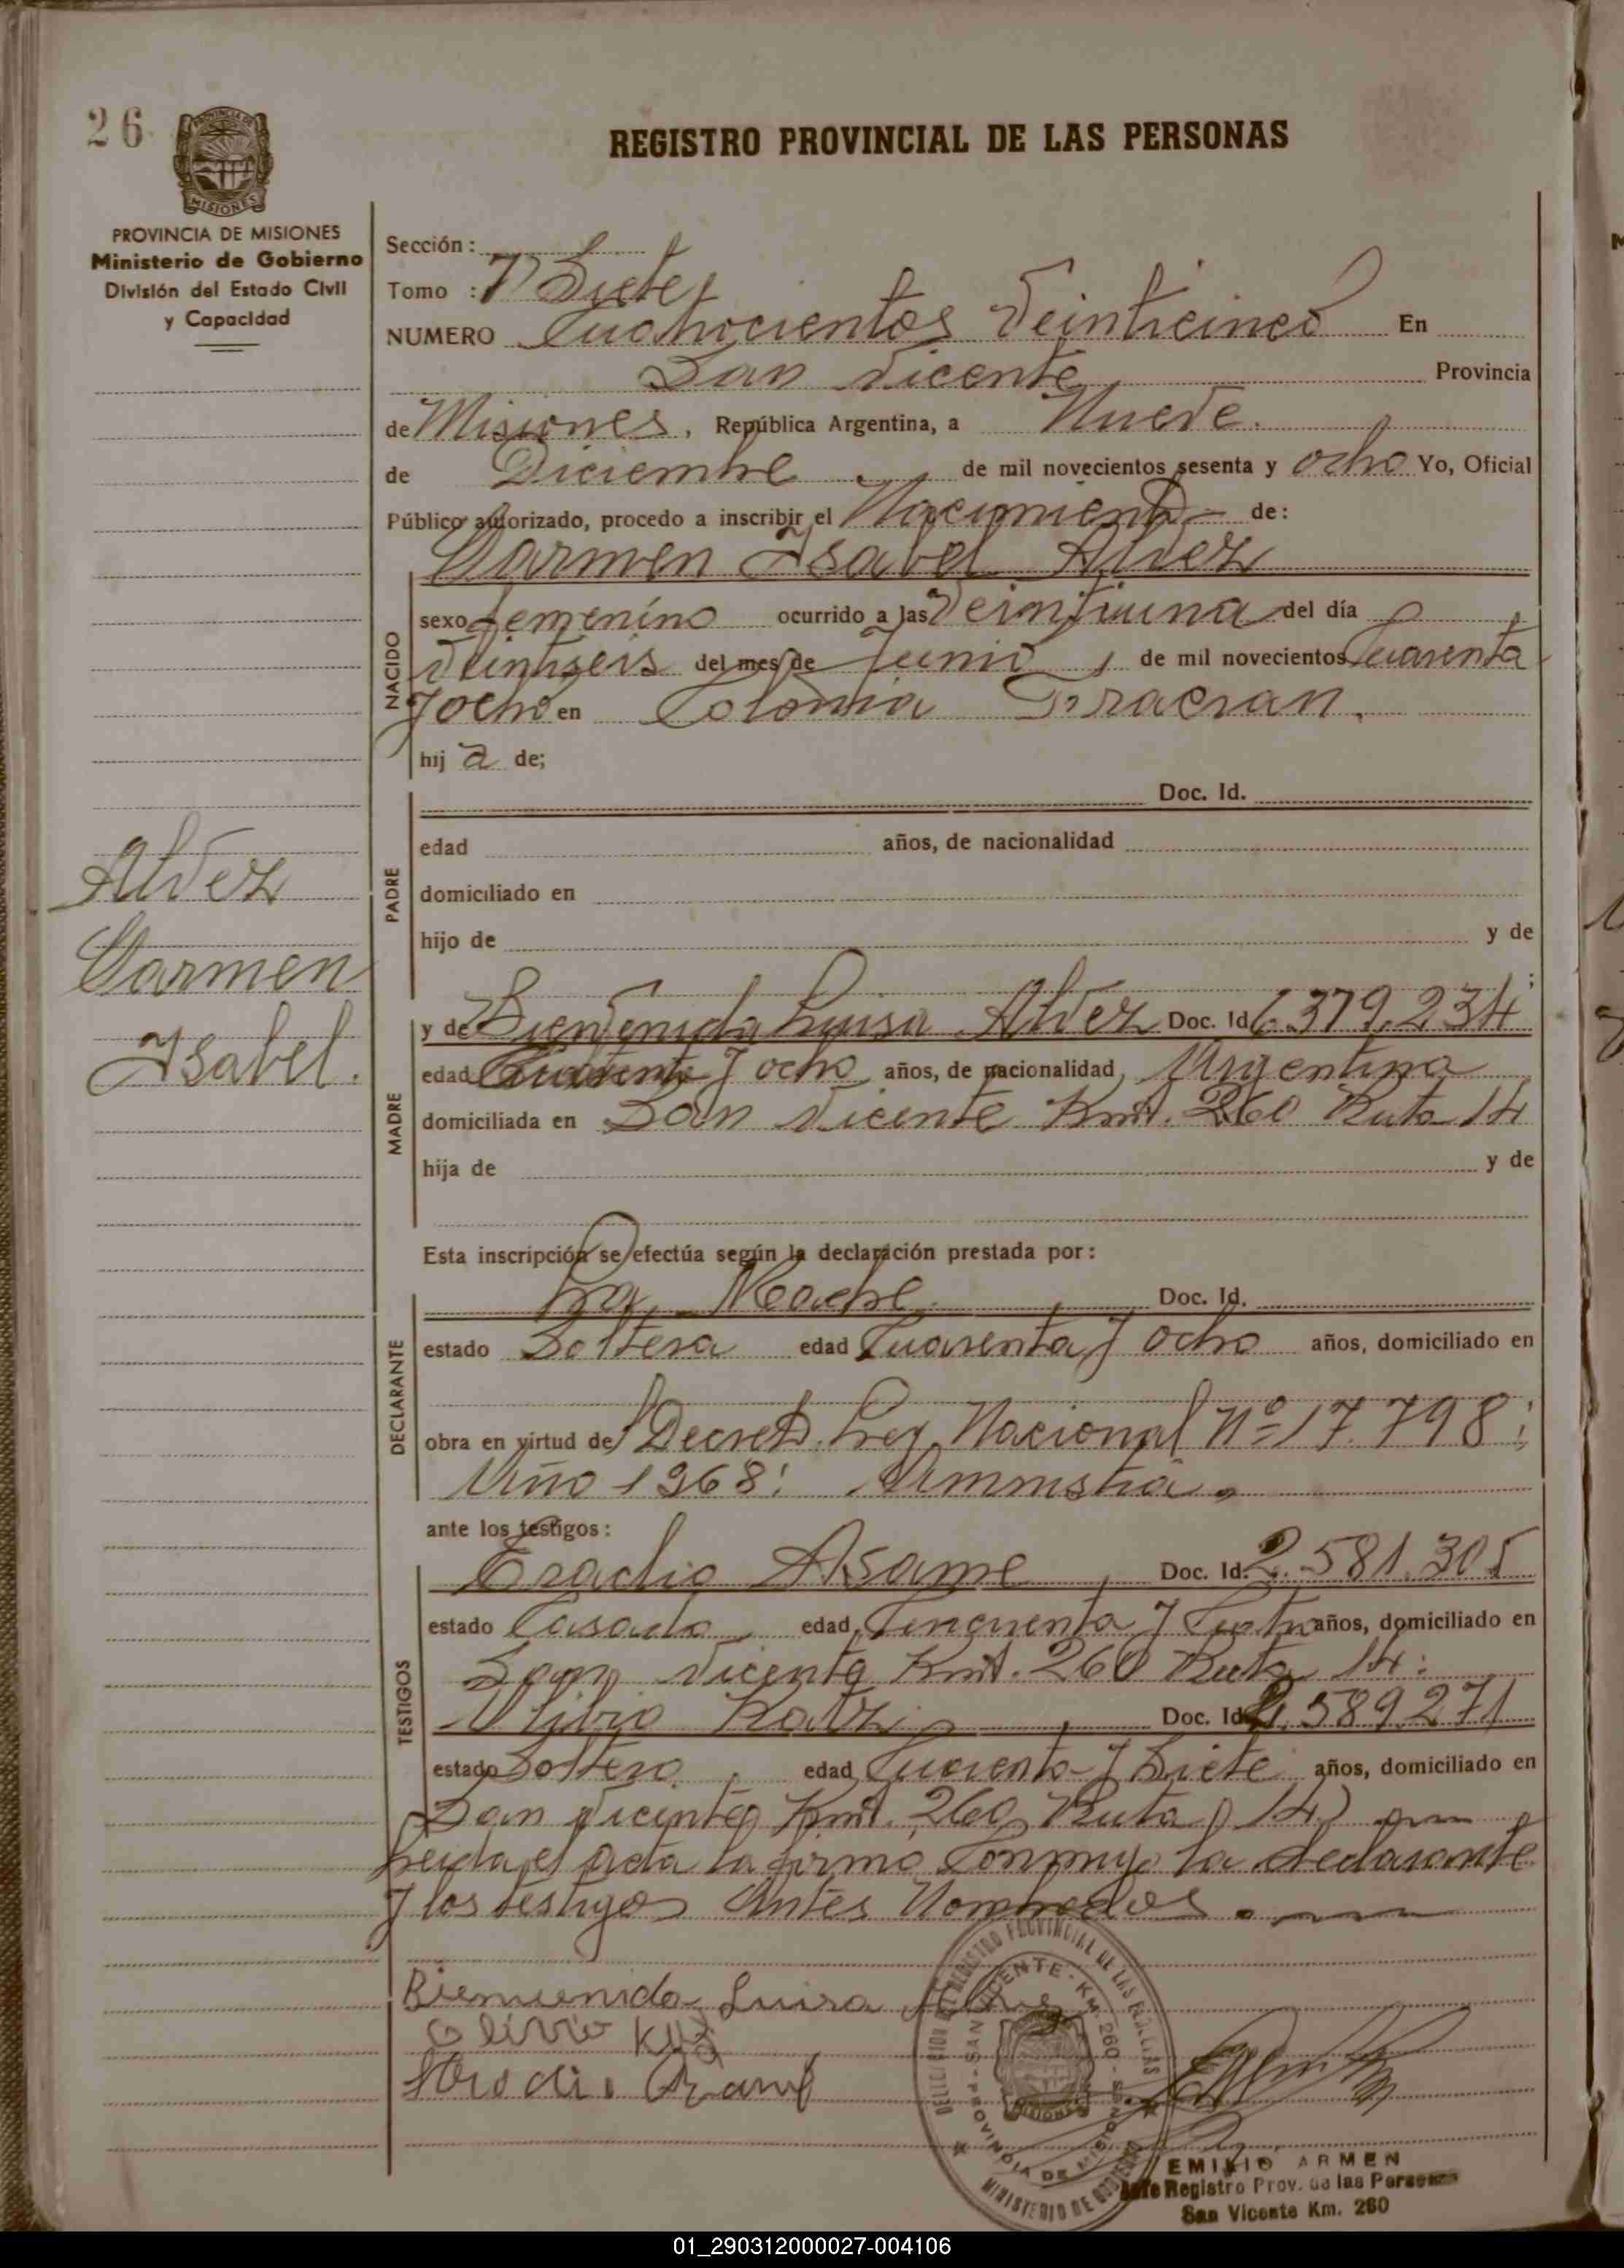 26
PROVINCIA DE MISIONES
Ministerio de Gobierno
División del Estado Civil
y Capacidad
REGISTRO PROVINCIAL DE LAS PERSONAS
Sección :
Tomo : 7 Siete
NUMERO Cuatrocientos Veinticinco En
San Vicente Provincia
de Misiones, República Argentina, a Nueve.
de Diciembre de mil novecientos sesenta y ocho Yo, Oficial
Público autorizado, procedo a inscribir el Nacimiento de:
Carmen Isabel Alvez
NACIDO
sexo femenino ocurrido a las Veintiuna del día
Veintiseis del mes de Junio de mil novecientos Cuarenta
y ocho en Colonia Fracran.
hij a de;
PADRE
Doc. Id.
edad años, de nacionalidad
domiciliado en
hijo de y de
Alvez
Carmen
Isabel.
MADRE
y de Bienvenida Luisa Alvez Doc. Id 6.379.234
edad Cuarenta y ocho años, de nacionalidad Argentina
domiciliada en San Vicente Kmt. 260 Ruta 14
hija de y de
Esta inscripción se efectúa según la declaración prestada por :
DECLARANTE
La Madre Doc. Id.
estado Soltera edad Cuarenta y ocho años, domiciliado en
obra en virtud de Decreto Ley Nacional Nº 17.798:
Año 1968: Amnistia.
ante los testigos :
TESTIGOS
Eradio Asame Doc. Id. 2.581.305
estado Casado edad Cincuenta y Cuatro años, domiciliado en
San Vicente Kmt. 260 Ruta 14:
Olibio Katz Doc. Id 2.589.271
estado Soltero edad Cuarenta y Siete años, domiciliado en
San Vicente Kmt. 260 Ruta 14)
Leida el acta la firma conmigo la declarante
y los testigos Antes Nombrados.
Bienvenida Luisa
Olivio
DELEGACION DEL REGISTRO PROVINCIAL DE LAS PERSONAS
SAN VICENTE - KM. 260
PROVINCIA DE MISIONES
MINISTERIO DE GOBIERNO
EMILIO ARMEN
Jefe Registro Prov. de las Personas
San Vicente Km. 260
01_290312000027-004106